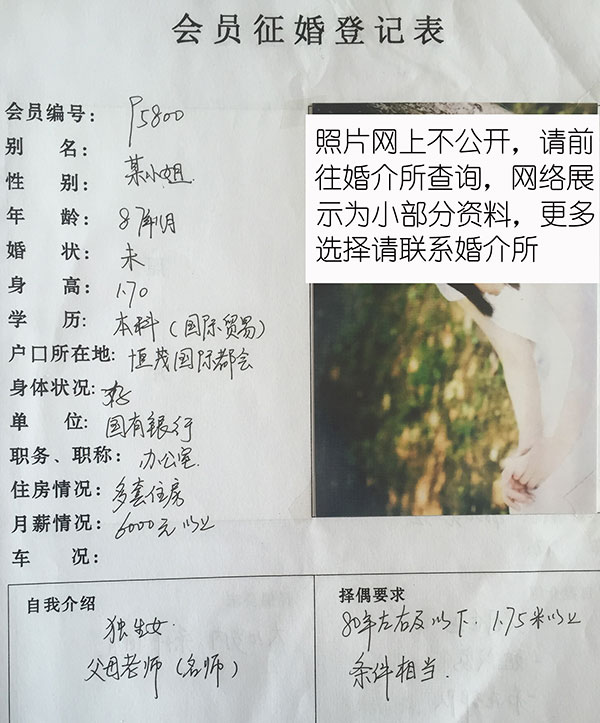 会员征婚登记表
会员编号: P5800
别 名:
性 别: 某小姐
年 龄: 87年1月
婚 状: 未
身 高: 1.70
学 历: 本科（国际贸易）
户口所在地: 恒茂国际都会
身体状况: 好
单 位: 国有银行
职务、职称: 办公室
住房情况: 多套住房
月薪情况: 6000元以上
车 况:
照片网上不公开，请前
往婚介所查询，网络展
示为小部分资料，更多
选择请联系婚介所
自我介绍
独生女.
父母老师（名师）
择偶要求
80年左右及以下. 1.75米以上
条件相当.